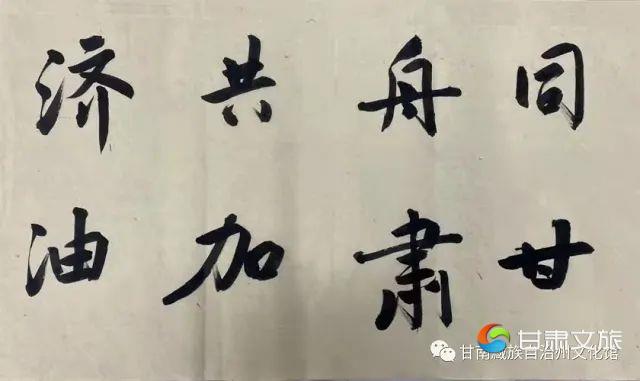 同舟共济
甘肃加油
甘肃文旅
甘南藏族自治州文化馆